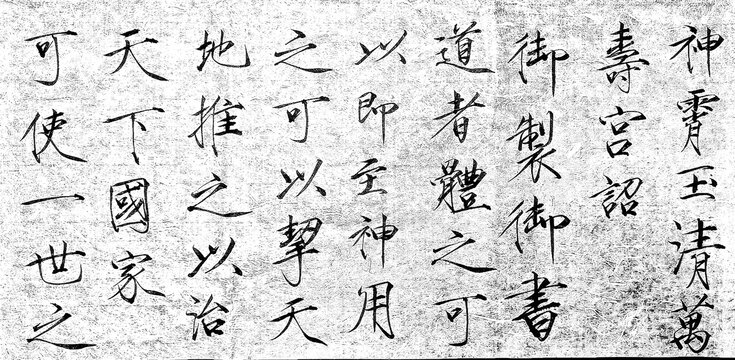 神霄玉清萬
壽宮詔
御製御書
道者體之可
以即至神用
之可以挈天
地推之以治
天下國家
可使一世之